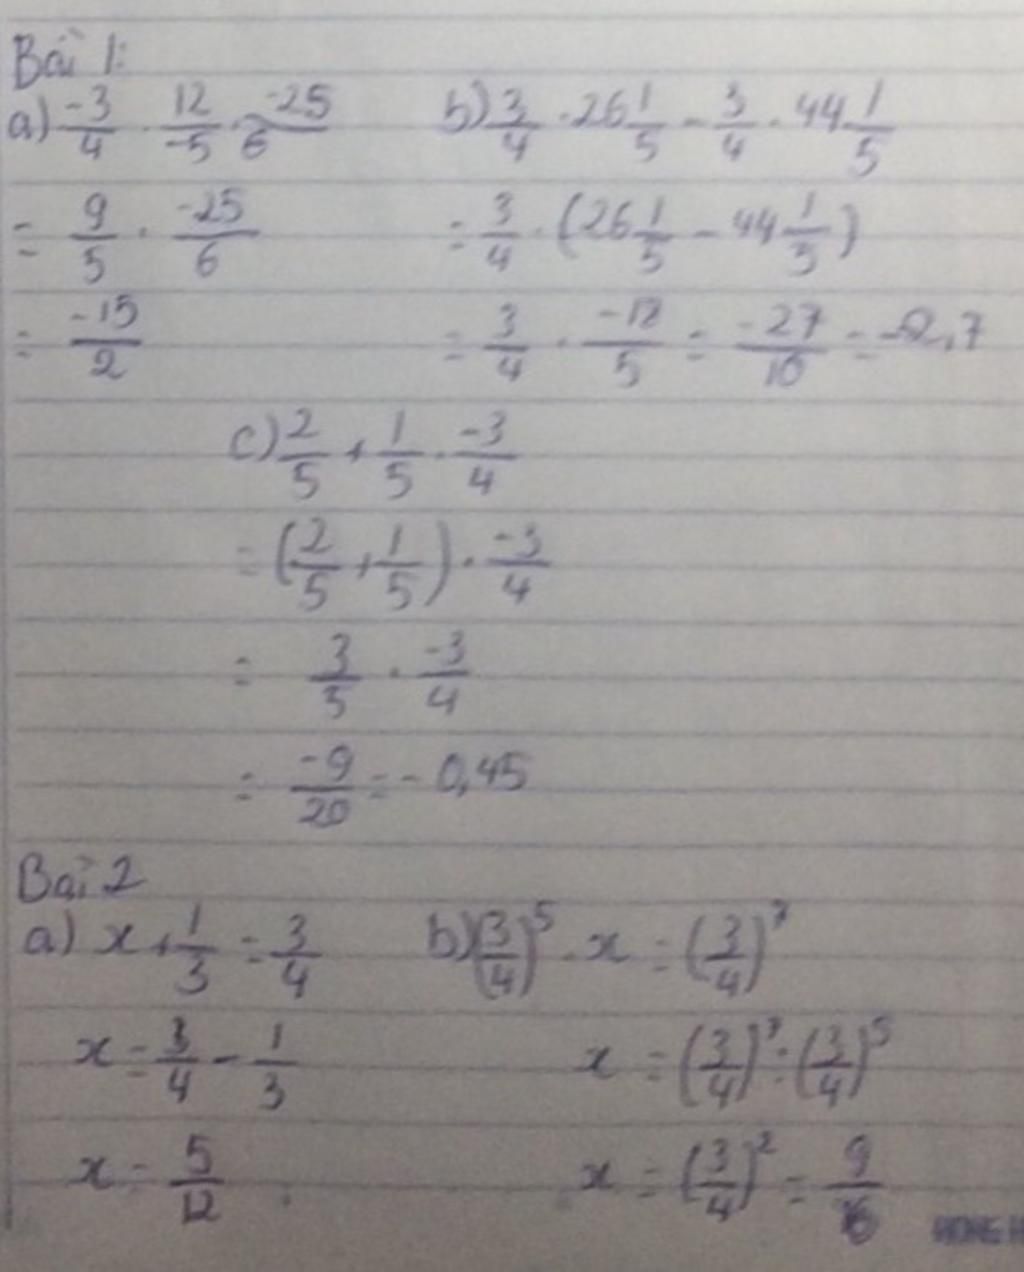 Bài 1:
a) -3/4 . 12/-5 . -25/6
= 9/5 . -25/6
= -15/2
b) 3/4 . 26 1/5 - 3/4 . 44 1/5
= 3/4 . (26 1/5 - 44 1/5)
= 3/4 . -18/5 = -27/10 = -2,7
c) 2/5 + 1/5 . -3/4
= (2/5 + 1/5) . -3/4
= 3/5 . -3/4
= -9/20 = -0,45
Bài 2
a) x + 1/3 = 3/4
x = 3/4 - 1/3
x = 5/12
b) (3/4)^5 . x = (3/4)^7
x = (3/4)^7 : (3/4)^5
x = (3/4)^2 = 9/16
HONG H